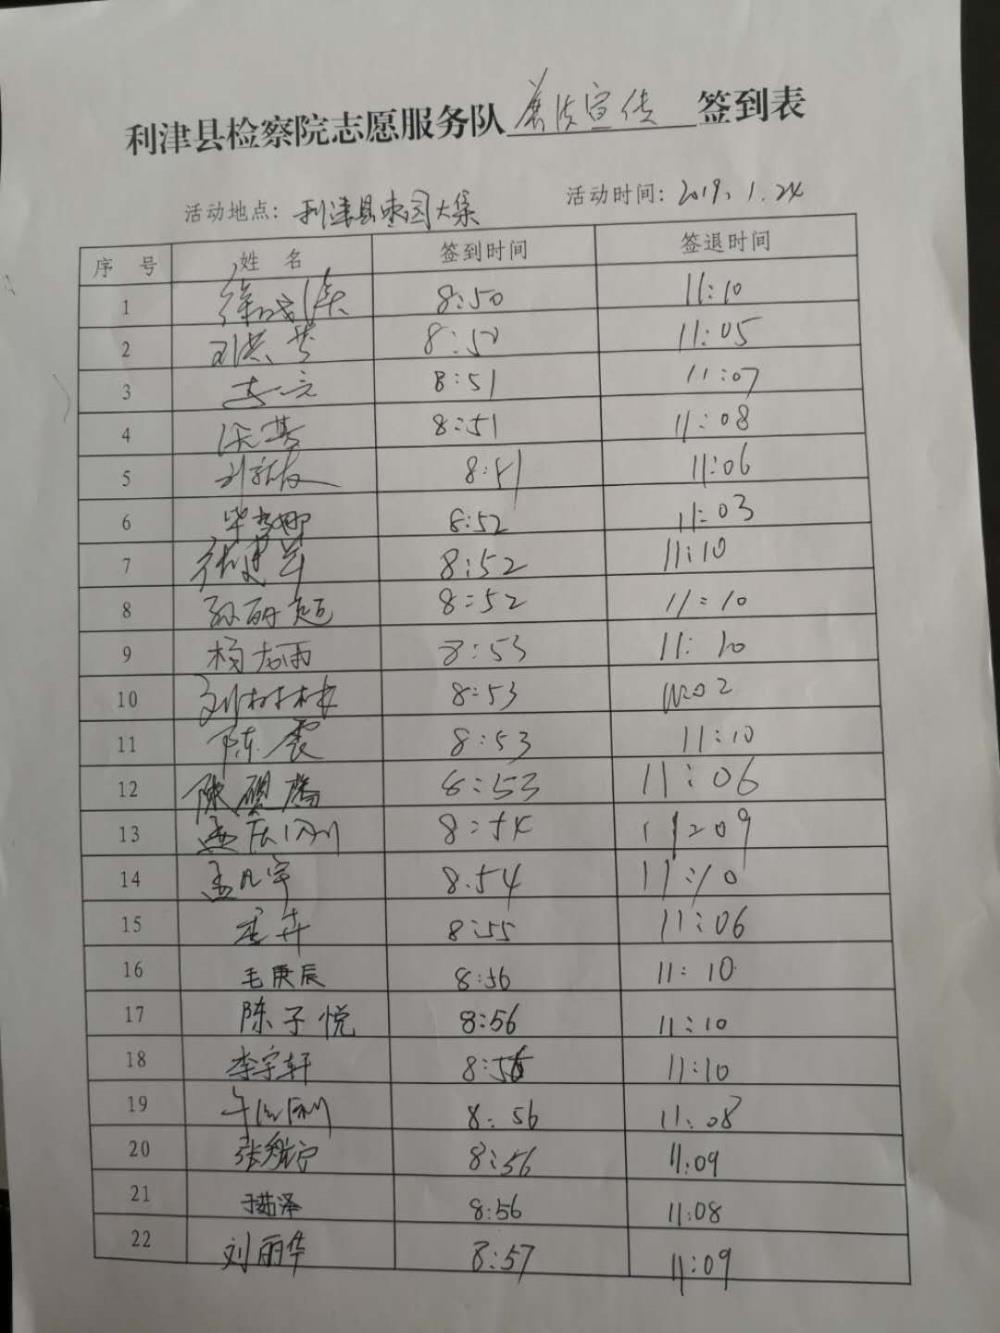 利津县检察院志愿服务队 普法宣传 签到表
活动地点：利津县枣园大集 活动时间：2019.1.24
序 号 姓 名 签到时间 签退时间
1 8:50 11:10
2 8:50 11:05
3 8:51 11:07
4 8:51 11:08
5 8:51 11:06
6 8:52 11:03
7 张建华 8:52 11:10
8 孙丽超 8:52 11:10
9 杨志雨 8:53 11:10
10 刘树林 8:53 11:02
11 陈震 8:53 11:10
12 8:53 11:06
13 8:54 11:09
14 孟凡宇 8.54 11:10
15 8:55 11:06
16 毛庚辰 8:56 11:10
17 陈子悦 8:56 11:10
18 李宇轩 8:56 11:10
19 8:56 11:08
20 8:56 11:09
21 于茹泽 8:56 11:08
22 刘丽华 8:57 11:09